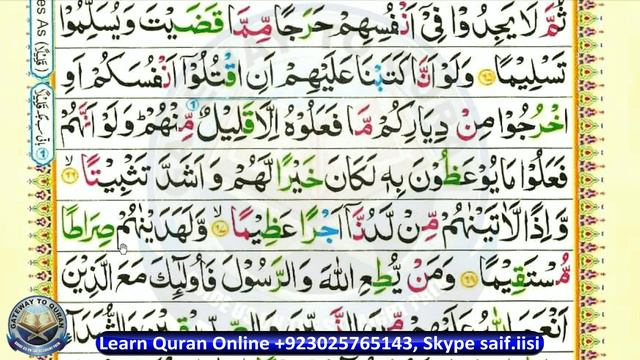 ثُمَّ لَا يَجِدُوْا فِیْۤ اَنْفُسِهِمْ حَرَجًا مِّمَّا قَضَیْتَ وَیُسَلِّمُوْا
تَسْلِیْمًا ۝۶۵ وَلَوْ اَنَّا كَتَبْنَا عَلَیْهِمْ اَنِ اقْتُلُوْۤا اَنْفُسَكُمْ اَوِ
اخْرُجُوْا مِنْ دِیَارِكُمْ مَّا فَعَلُوْهُ اِلَّا قَلِیْلٌ مِّنْهُمْ ؕ وَلَوْ اَنَّهُمْ
فَعَلُوْا مَا یُوْعَظُوْنَ بِهٖ لَكَانَ خَیْرًا لَّهُمْ وَاَشَدَّ تَثْبِیْتًا ۝۶۶
وَّاِذًا لَّاٰتَیْنٰهُمْ مِّنْ لَّدُنَّاۤ اَجْرًا عَظِیْمًا ۝۶۷ وَّلَهَدَیْنٰهُمْ صِرَاطًا
مُّسْتَقِیْمًا ۝۶۸ وَمَنْ یُّطِعِ اللّٰهَ وَالرَّسُوْلَ فَاُولٰٓئِكَ مَعَ الَّذِیْنَ
اَنْعَمَ اللّٰهُ عَلَیْهِمْ مِّنَ النَّبِیّٖنَ وَالصِّدِّیْقِیْنَ وَالشُّهَدَآءِ
es As
GATEWAY TO QURAN
Learn Quran Online +923025765143, Skype saif.iisi